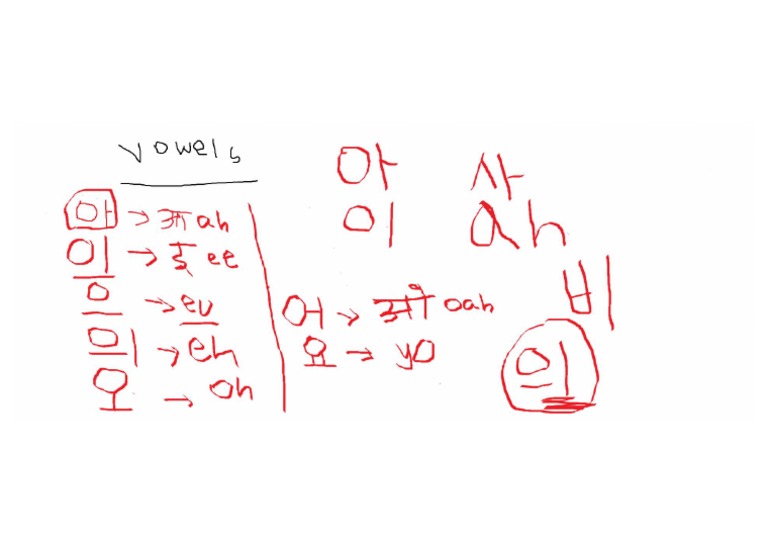 vowels
아 → आ ah
이 → ई ee
으 → eu
의 → eh
오 → oh
어 → ओ oah
요 → yo
아 사
이 ah
비
의